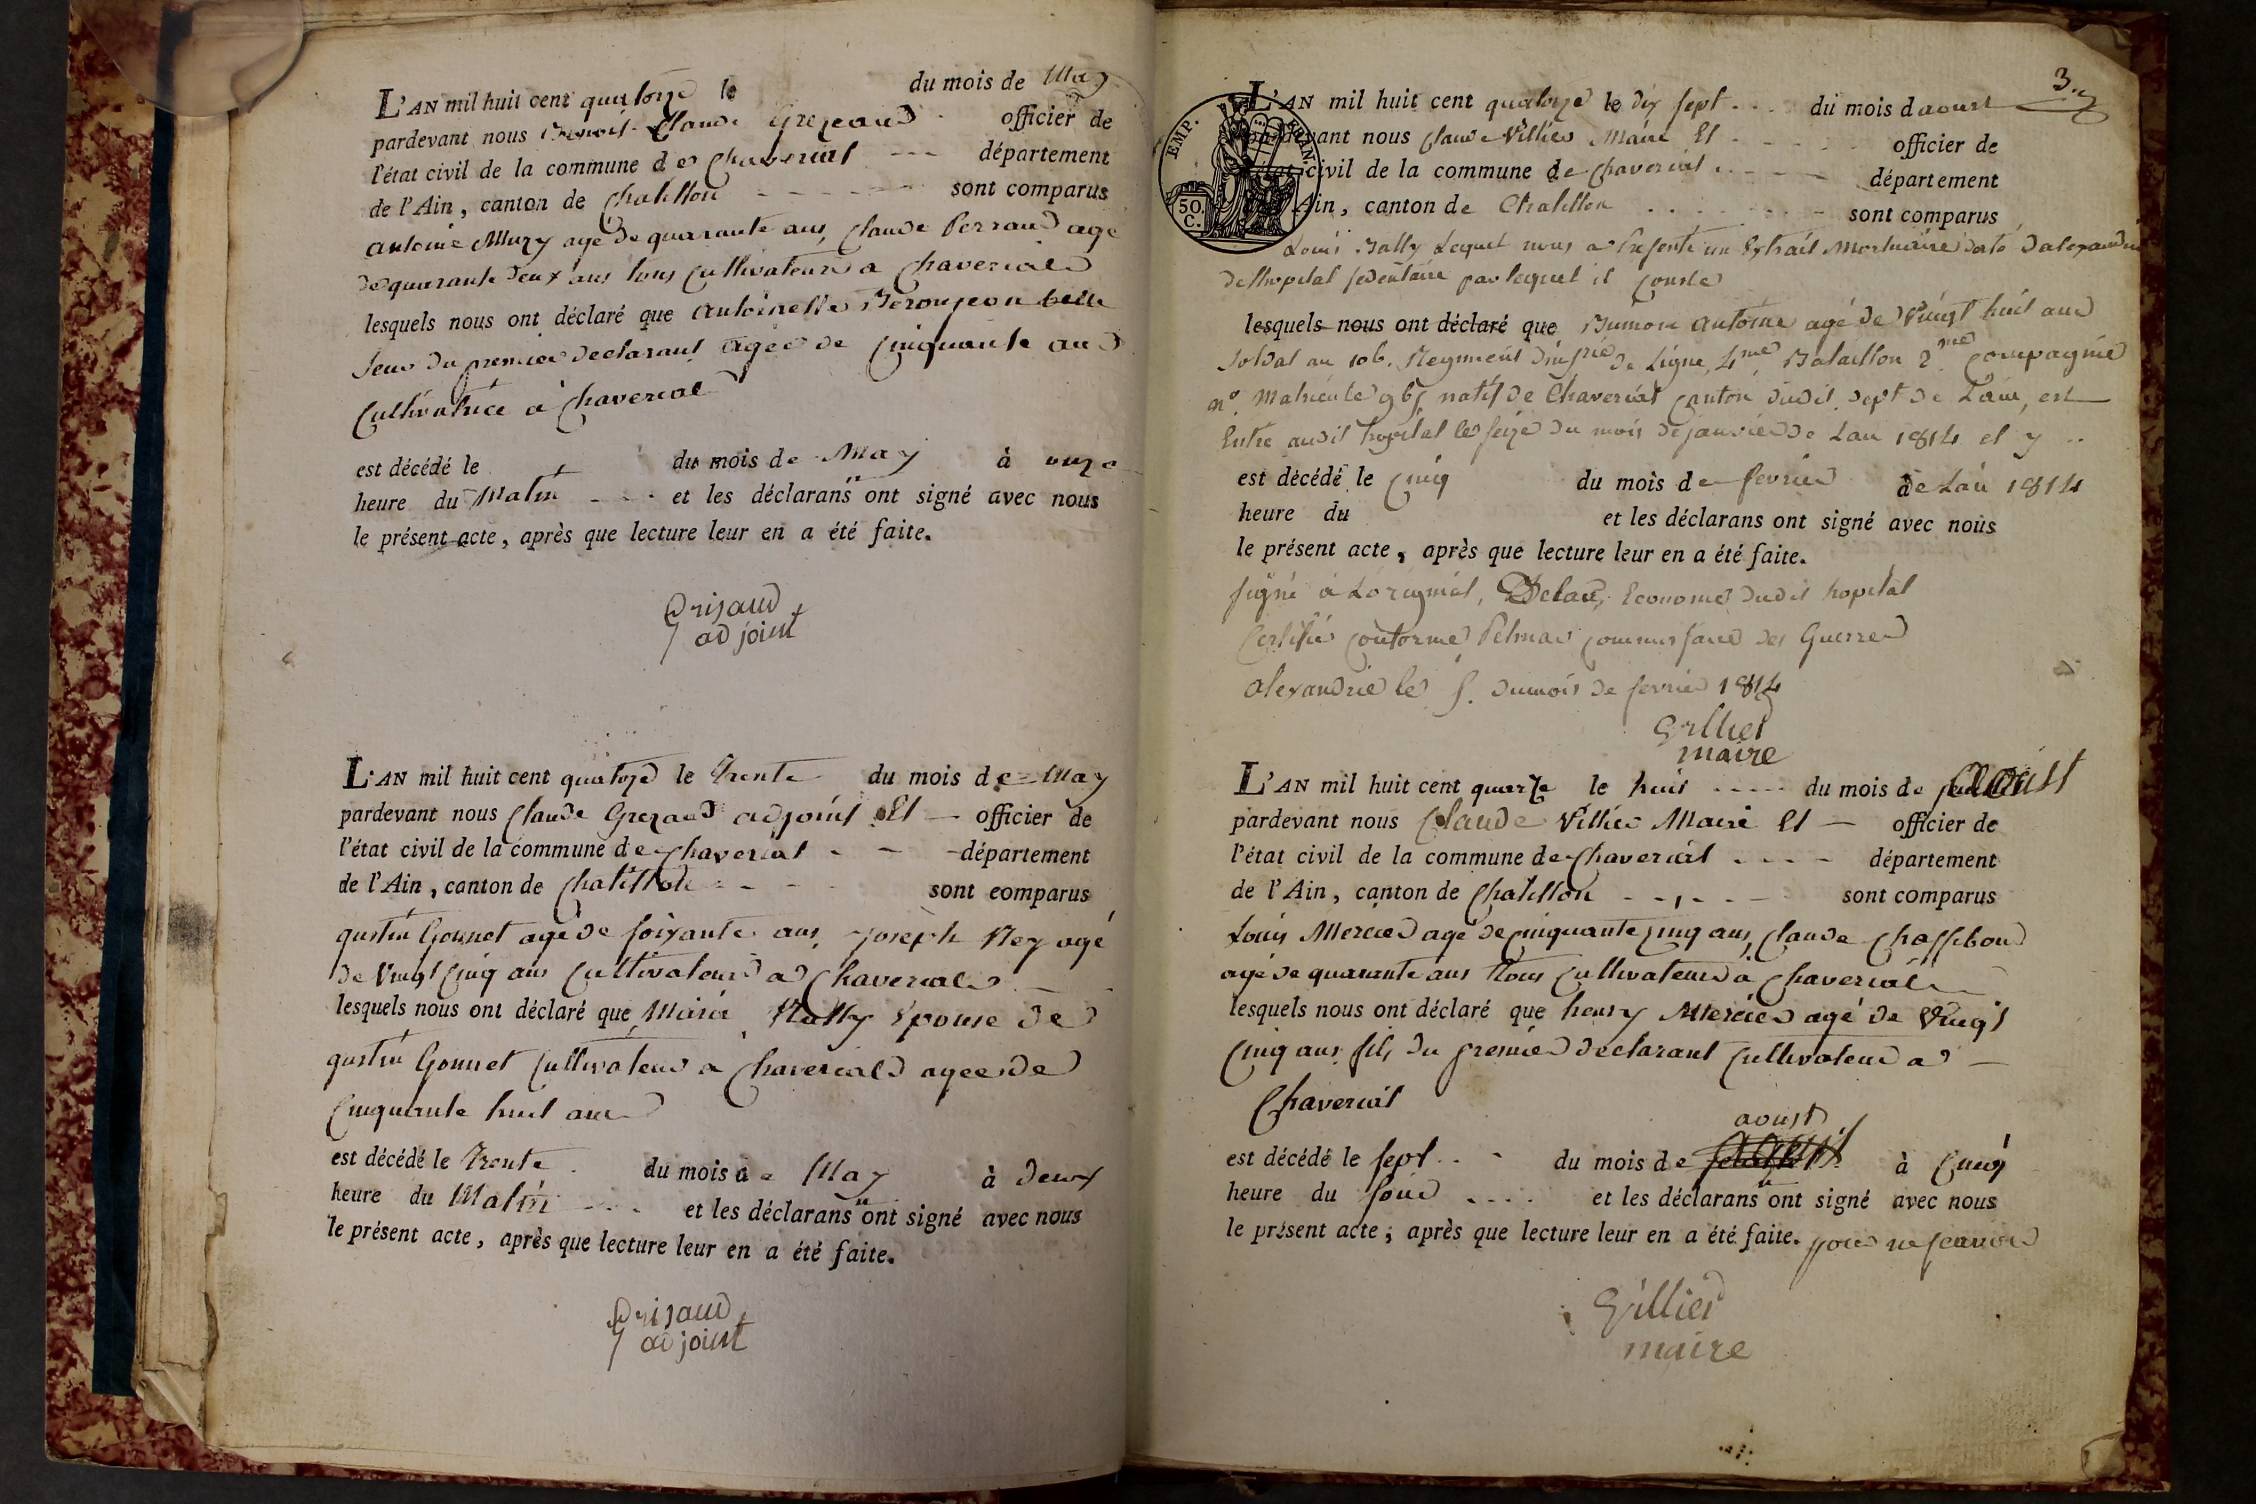 L'AN mil huit cent quatorze le du mois de May
pardevant nous Claude Grezeaud officier de
l'état civil de la commune de Chaveriat --- département
de l'Ain, canton de Chatillon - - - - - sont comparus
antoine Mury agé de quarante ans, Claude Perraud agé
de quarante deux ans tous Cultivateurs a Chaveriat
lesquels nous ont déclaré que antoinette Beroujon belle
seur du premier declarant agée de Cinquante ans
Cultivatrice a Chaveriat
est décédé le du mois de May à onze
heure du Matin - - - et les déclarans n'ont signé avec nous
le présent acte, après que lecture leur en a été faite.
Grisaud
adjoint
L'AN mil huit cent quatorze le Trente du mois de May
pardevant nous Claude Grezaud adjoint Et — officier de
l'état civil de la commune de Chaveriat - - - département
de l'Ain, canton de Chatillon - - - sont comparus
gustin Gonnet agé de soixante ans, joseph Rey agé
de Vingt Cinq ans Cultivateurs a Chaveriat
lesquels nous ont déclaré que Marie Batty Epouse de
gustin Gonnet Cultivateur a Chaveriat agee de
Cinquante huit ans
est décédé le Trente du mois de May à deux
heure du Matin - - - et les déclarans n'ont signé avec nous
le présent acte, après que lecture leur en a été faite.
Grisaud
adjoint
3
EMP. FRAN.
50. C.
L'AN mil huit cent quatorze le dix sept - - - du mois d aoust
pardevant nous Claude Villier Maire Et - - - officier de
l'état civil de la commune de Chaveriat - - - département
de l'Ain, canton de Chatillon - - - sont comparus
Louis Batty Lequel nous a Presenté un Extrait Mortuaire daté dalexandrie
de lhopital sedentaire par lequel il Conste
lesquels nous ont déclaré que Antoine agé de Vingt huit ans
Soldat au 106. Regiment dinfrie de Ligne, 4me. Bataillon 2me Compagnie
n°. Matricule natif de Chaveriat Canton dudit dept de Lain, est
Entré audit hopital le seize du mois de janvier de Lan 1814 et y ..
est décédé le Cinq du mois de fevrier de Lan 1814
heure du et les déclarans ont signé avec nous
le présent acte, après que lecture leur en a été faite.
signé a Loriginal, Delau, Econome dudit hopital
Certifié Conforme Commissaire des Guerres
alexandrie le 5. du mois de fevrier 1814
Gillier
maire
L'AN mil huit cent le huit - - - - - du mois de aoust
pardevant nous Claude Villier Maire Et — officier de
l'état civil de la commune de Chaveriat - - - - département
de l'Ain, canton de Chatillon - - - - sont comparus
Louis Mercier agé de Cinquante Cinq ans, Claude
agé de quarante ans tous Cultivateurs a Chaveriat
lesquels nous ont déclaré que henry Mercier agé de Vingt
Cinq ans fils du premier declarant Cultivateur a —
Chaveriat
aoust
est décédé le sept - - du mois de à Cinq
heure du soir - - - - et les déclarans n'ont signé avec nous
le présent acte, après que lecture leur en a été faite. pour ne scavoir
Gillier
maire